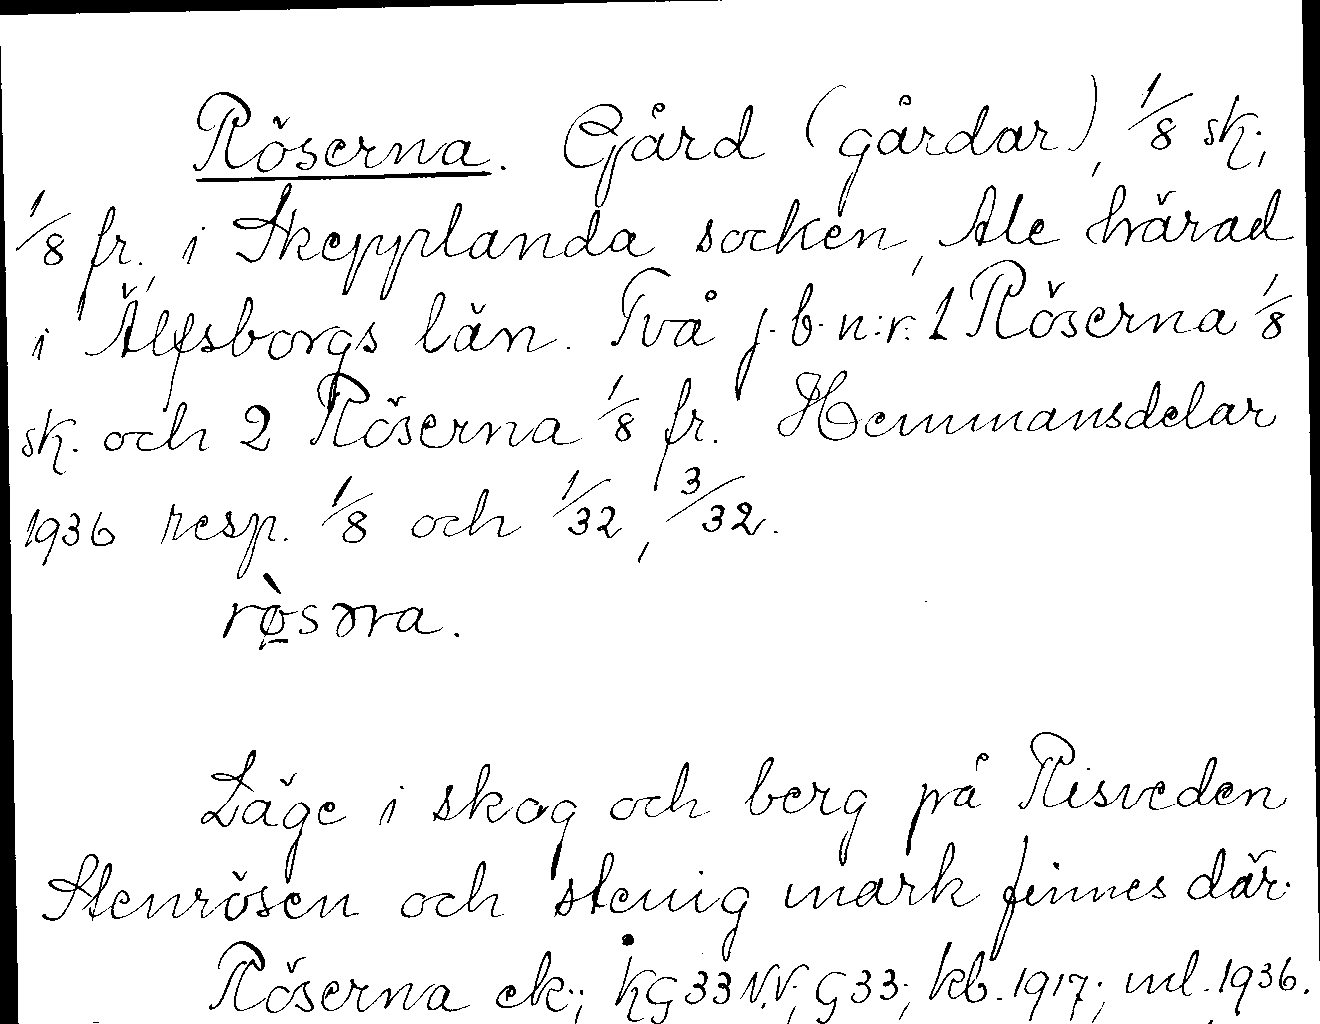 Röserna. Gård (gårdar), 1/8 sk.,
1/8 fr., i Skepplanda socken, Ale härad
i Älfsborgs län. Två j.b.n:r: 1 Röserna 1/8
sk. och 2 Röserna 1/8 fr. Hemmansdelar
1936 resp. 1/8 och 1/32, 3/32.
rø̀səra.
Läge i skog och berg på Risveden
Stenrösen och stenig mark finnes där.
Röserna ek.; KG 33 N.V; G 33; kb. 1917; ml. 1936.